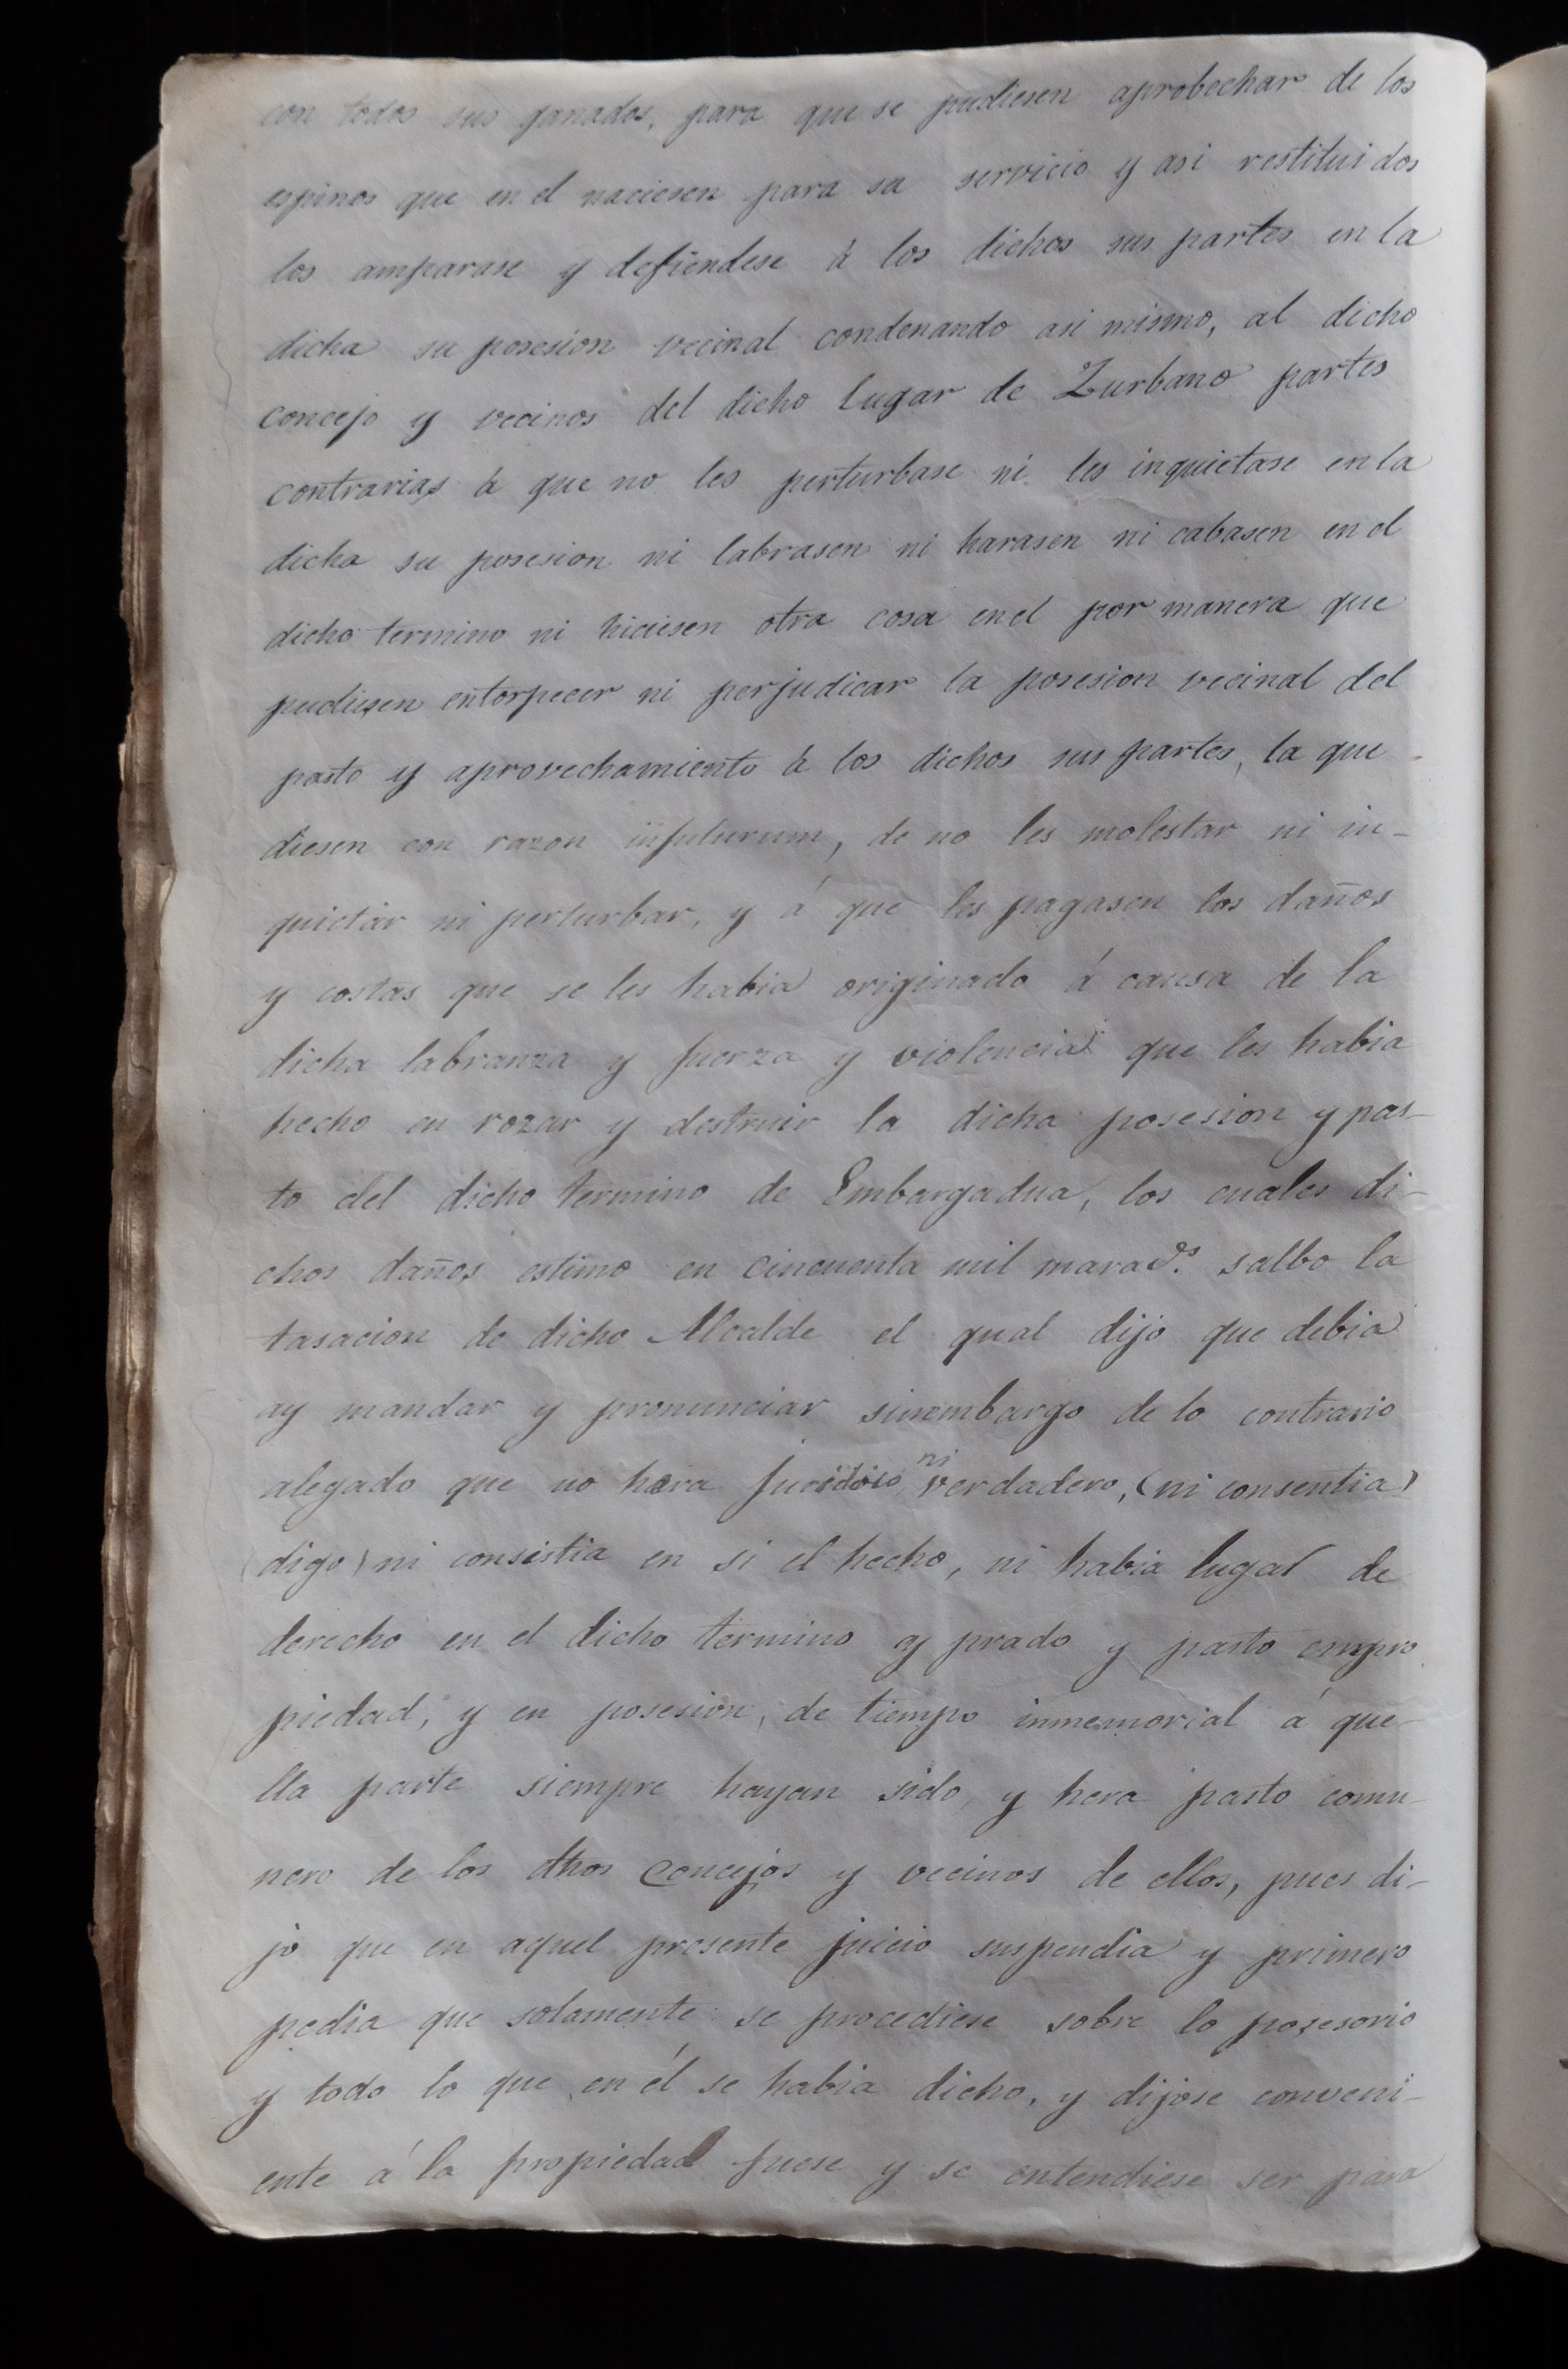 con todos sus ganados, para que se pudiesen aprobechar de los
espinos que en el naciesen para su servicio y asi restituidos
los amparase y defiendese à los dichos sus partes en la
dicha su posesion vecinal condenando asi mismo, al dicho
concejo y vecinos del dicho lugar de Zurbano partes
contrarias à que no les perturbase ni les inquietase en la
dicha su posesion ni labrasen ni harasen ni cabasen en el
dicho termino ni hiciesen otra cosa en el por manera que
pudiesen entorpecer ni perjudicar la posesion vecinal del
pasto y aprovechamiento à los dichos sus partes, la que
diesen con razon infuturum, de no les molestar ni in-
quietar ni perturbar, y á que les pagasen los daños
y costas que se les habia originado á causa de la
dicha labranza y fuerza y violencia que les habia
hecho en rozar y destruir la dicha posesion y pas-
to del dicho termino de Embargadua, los cuales di-
chos daños estimo en cincuenta mil marads. salbo la
tasacion de dicho Alcalde el qual dijo que debia
ay mandar y pronunciar sinembargo de lo contrario
alegado que no hera juridico ni verdadero, (ni consentia)
(digo) ni consistia en si el hecho, ni habia lugar de
derecho en el dicho termino y prado y pasto empro
piedad, y en posesion, de tiempo inmemorial á que-
lla parte siempre hayan sido, y hera pasto comu-
nero de los dhos concejos y vecinos de ellos, pues di-
jo que en aquel presente juicio suspendia y primero
pedia que solamente se procediese sobre lo posesorio
y todo lo que en él se habia dicho, y dijose conveni-
ente á la propiedad fuese y se entendiese ser para